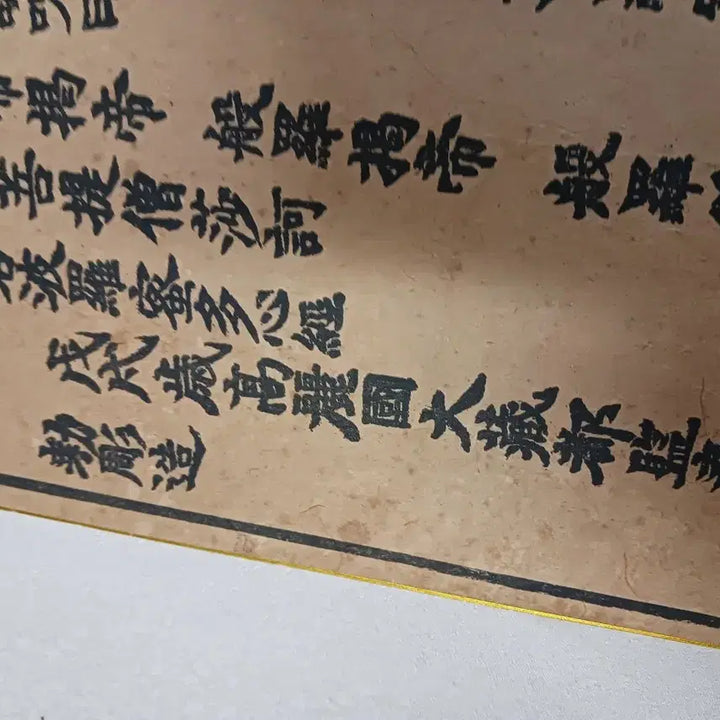 呪曰
揭帝 般羅揭帝 般羅
菩提僧莎訶
波羅蜜多心經
戊戌歲高麗國大藏都監奉
勅彫造